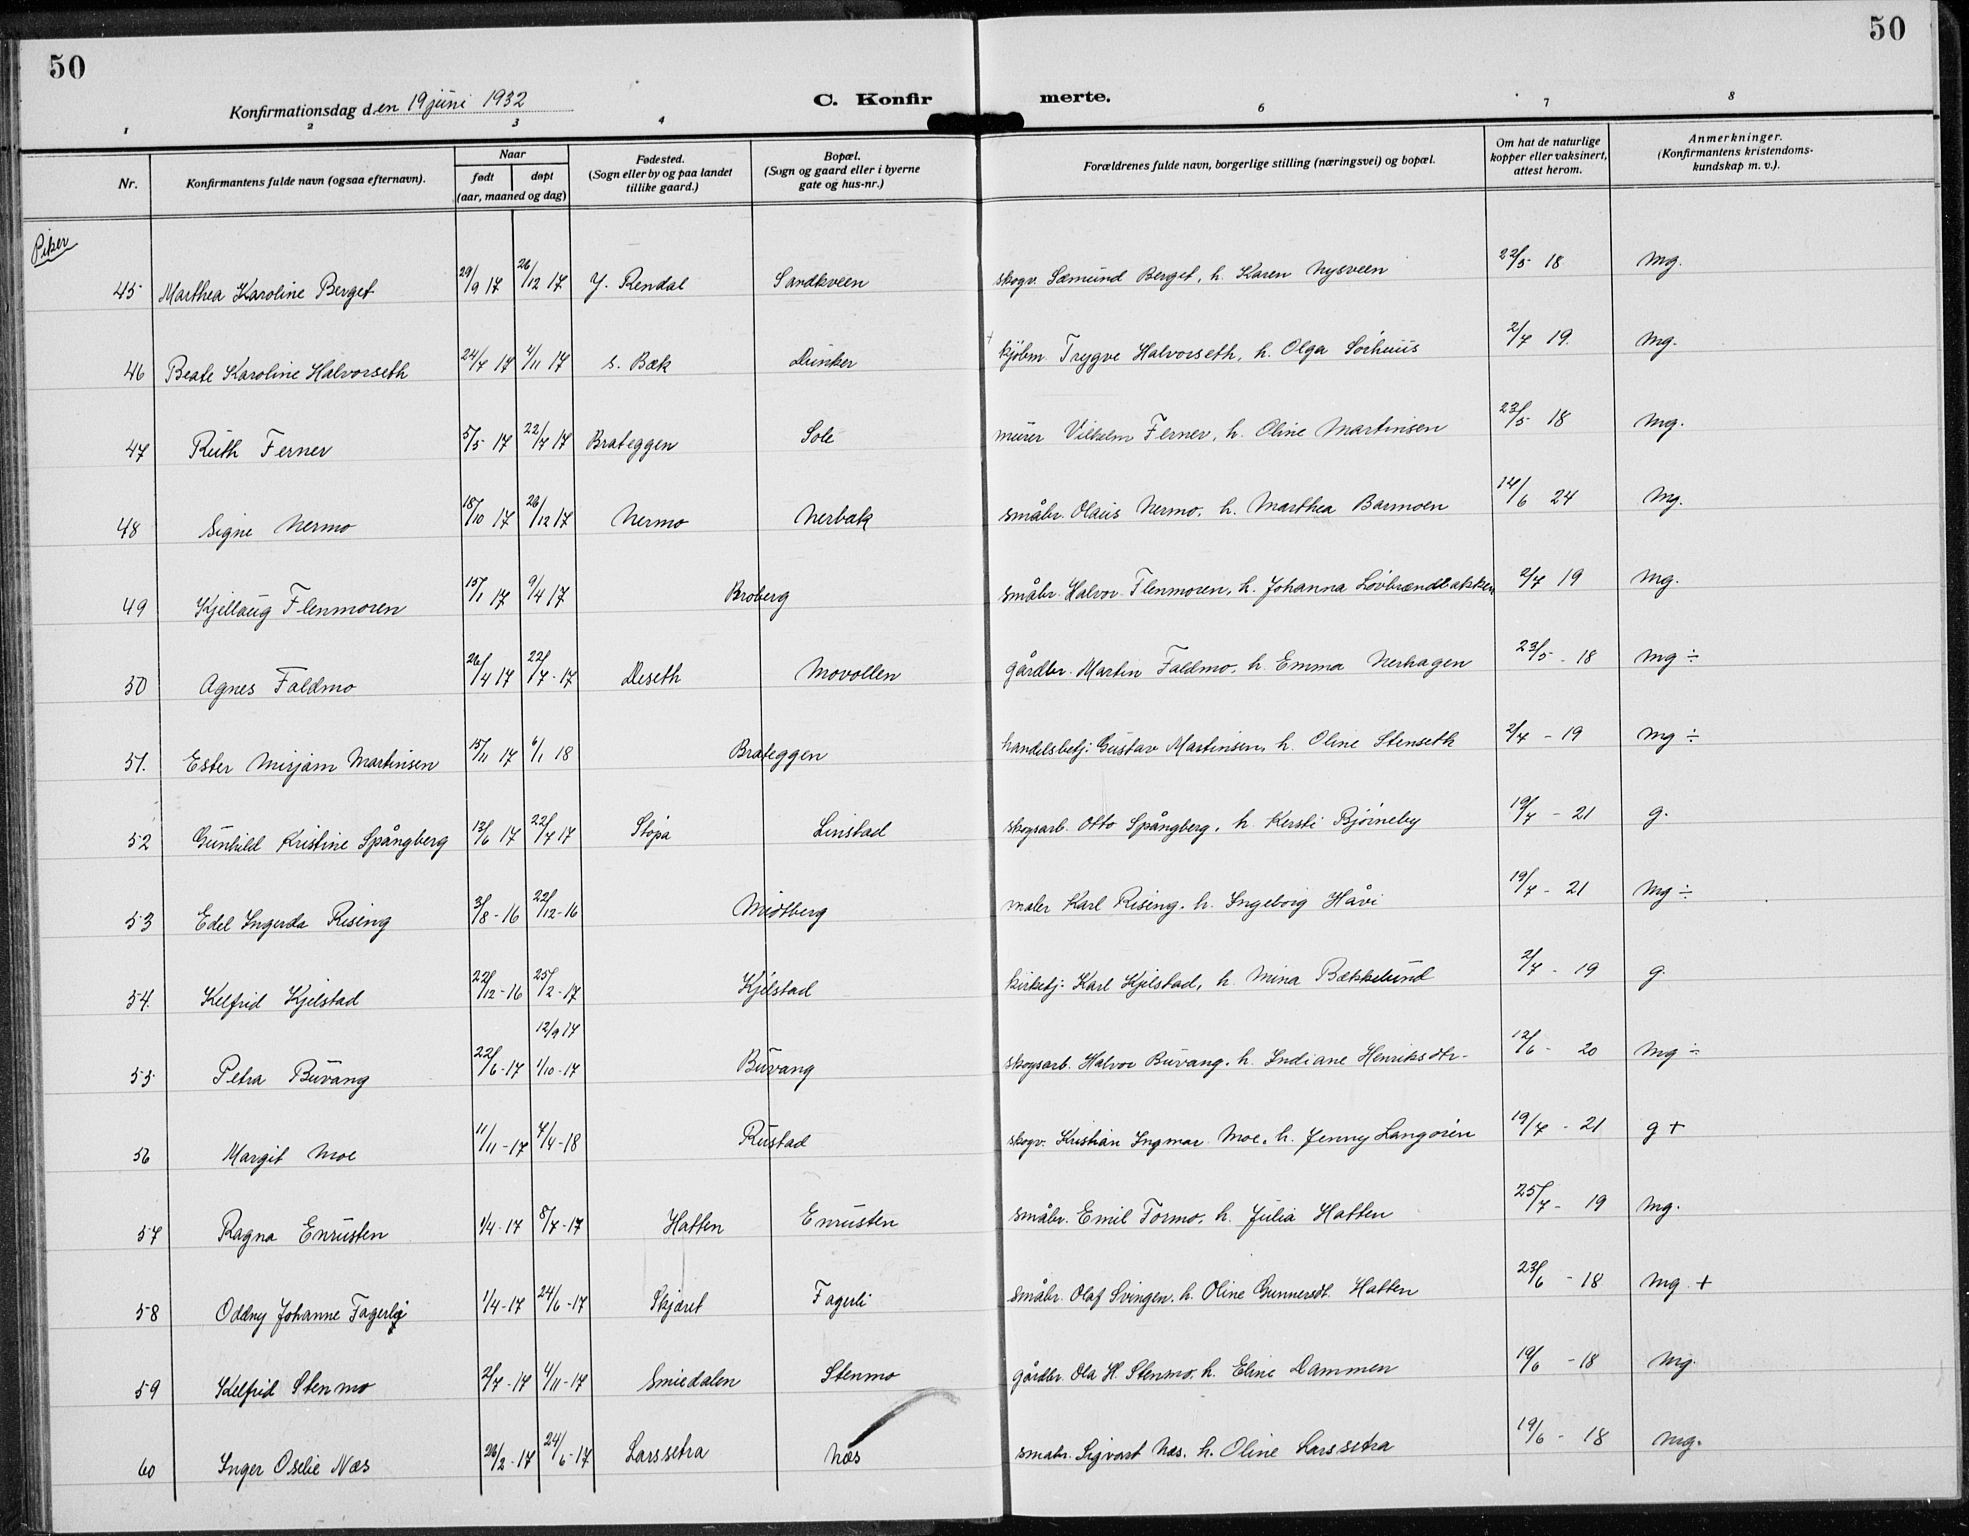 50 50
Konfirmationsdag den 19 juni 1932 C. Konfir merte.
1 2 3 4 6 7 8
Nr. Konfirmantens fulde navn (ogsaa efternavn). Naar født døpt (aar, maaned og dag) Fødested. (Sogn eller by og paa landet tillike gaard.) Bopæl. (Sogn og gaard eller i byerne gate og hus-nr.) Forældrenes fulde navn, borgerlige stilling (næringsvei) og bopæl. Om hat de naturlige kopper eller vaksinert, attest herom. Anmerkninger. (Konfirmantens kristendomskundskap m. v.).
Piker
45 Marthea Karoline Berget 29/9 17 26/12 17 Y. Rendal Sandkveen skogv. Sæmund Berget, h. Karen Nysveen 22/5 18 mg.
46 Beate Karoline Halvorseth 24/7 17 4/11 17 s. Bæk Dunker kjøbm. Trygve Halvorseth, h. Olga Sorhuus 2/7 19. mg.
47 Ruth Ferner 5/5 17 22/7 17 Brateggen Sole murer Vilhelm Ferner, h. Oline Martinsen 23/5 18 mg.
48 Signe Nermo 18/10 17 26/12 17 Nermo Nerbæk småbr. Olaus Nermo, h. Marthea Barmoen 12/6 24 mg.
49 Kjellaug Flenmoen 15/1 17 9/4 17 Broberg småbr. Halvor Flenmoen, h. Johanna Løvbrændbakken 2/7 19 mg.
50 Agnes Faldmo 26/4 17 22/7 - 17 Deseth Movollen gårdbr. Martin Faldmo, h. Emma Nerhagen 23/5 - 18 mg ÷
51. Ester Mirjam Martinsen 15/11 17 6/1 18 Brateggen handelsbetj. Gustav Martinsen, h. Oline Stenseth 2/7 - 19 mg ÷
52 Gunhild Kristine Spångberg 13/6 17 22/7 17 Støpa Linstad skogsarb. Otto Spångberg, h. Kersti Bjørneby 19/7 - 21 g.
53 Edel Ingerda Rising 3/8 - 16 22/12 - 16 Midtberg maler Karl Rising. h. Ingeborg Håvi 19/7 - 21 mg ÷
54. Kelfrid Kjelstad 22/12 - 16 25/2 - 17 Kjelstad kirketj. Karl Kjelstad, h. Mina Bækkelund 2/7 - 19 g.
12/9 17
55 Petra Buvang 22/6 - 17 1/10 - 17 Buvang skogsarb. Halvor Buvang. h. Indiane Henriksdtr. 12/6 - 20 mg ÷
56 Margit Moe 11/11 - 17 7/4 - 18 Rustad skogv. Kristian Ingmar Moe, h. Jenny Langøien 19/7 - 21 g +
57 Ragna Enrusten 1/4 - 17 8/7 - 17 Hatten Enrusten småbr. Emil Formo, h. Julia Hatten 25/7 - 19 mg.
58 Oddny Johanne Fagerli 1/4 - 17 24/6 - 17 Skjæret Fagerli småbr. Olaf Svingen. h. Oline Gunnersdt. Hatten 23/6 - 18 mg. +
59 Idelfrid Stenmo 2/7 - 17 4/11 - 17 Smiedalen Stenmo gårdbr. Ola H. Stenmo, h. Eline Dammen 19/6 - 18 mg.
60 Inger Oselie Næs 26/2 - 17 24/6 - 17 Larssetra Næs smabr. Sigvart Næs. h. Oline Larssetra 19/6 - 18 mg.